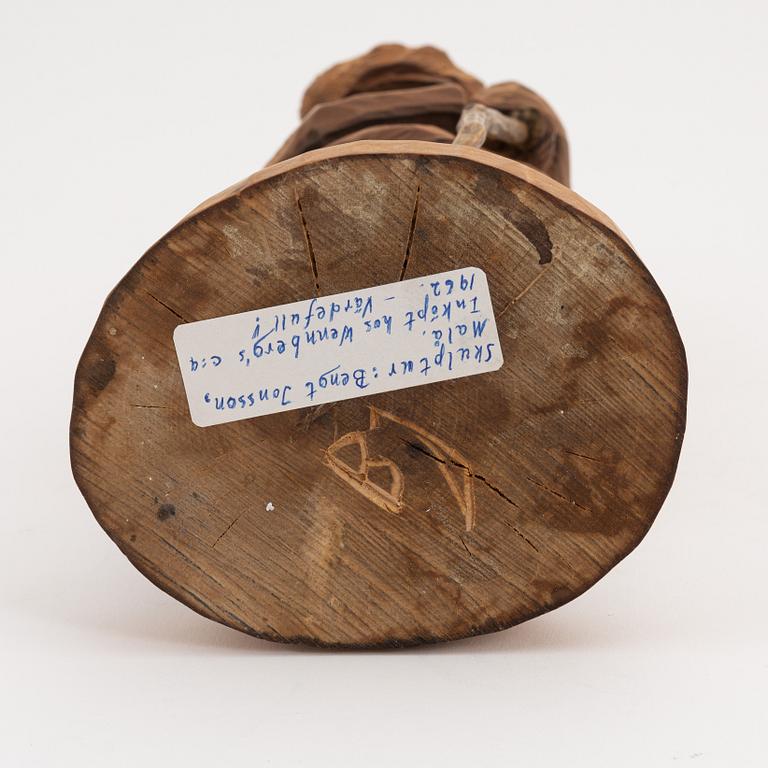 Skulptur: Bengt Jonsson,
Malå.
Inköpt hos Wennberg's c:a
1962. – Värdefull!
BJ